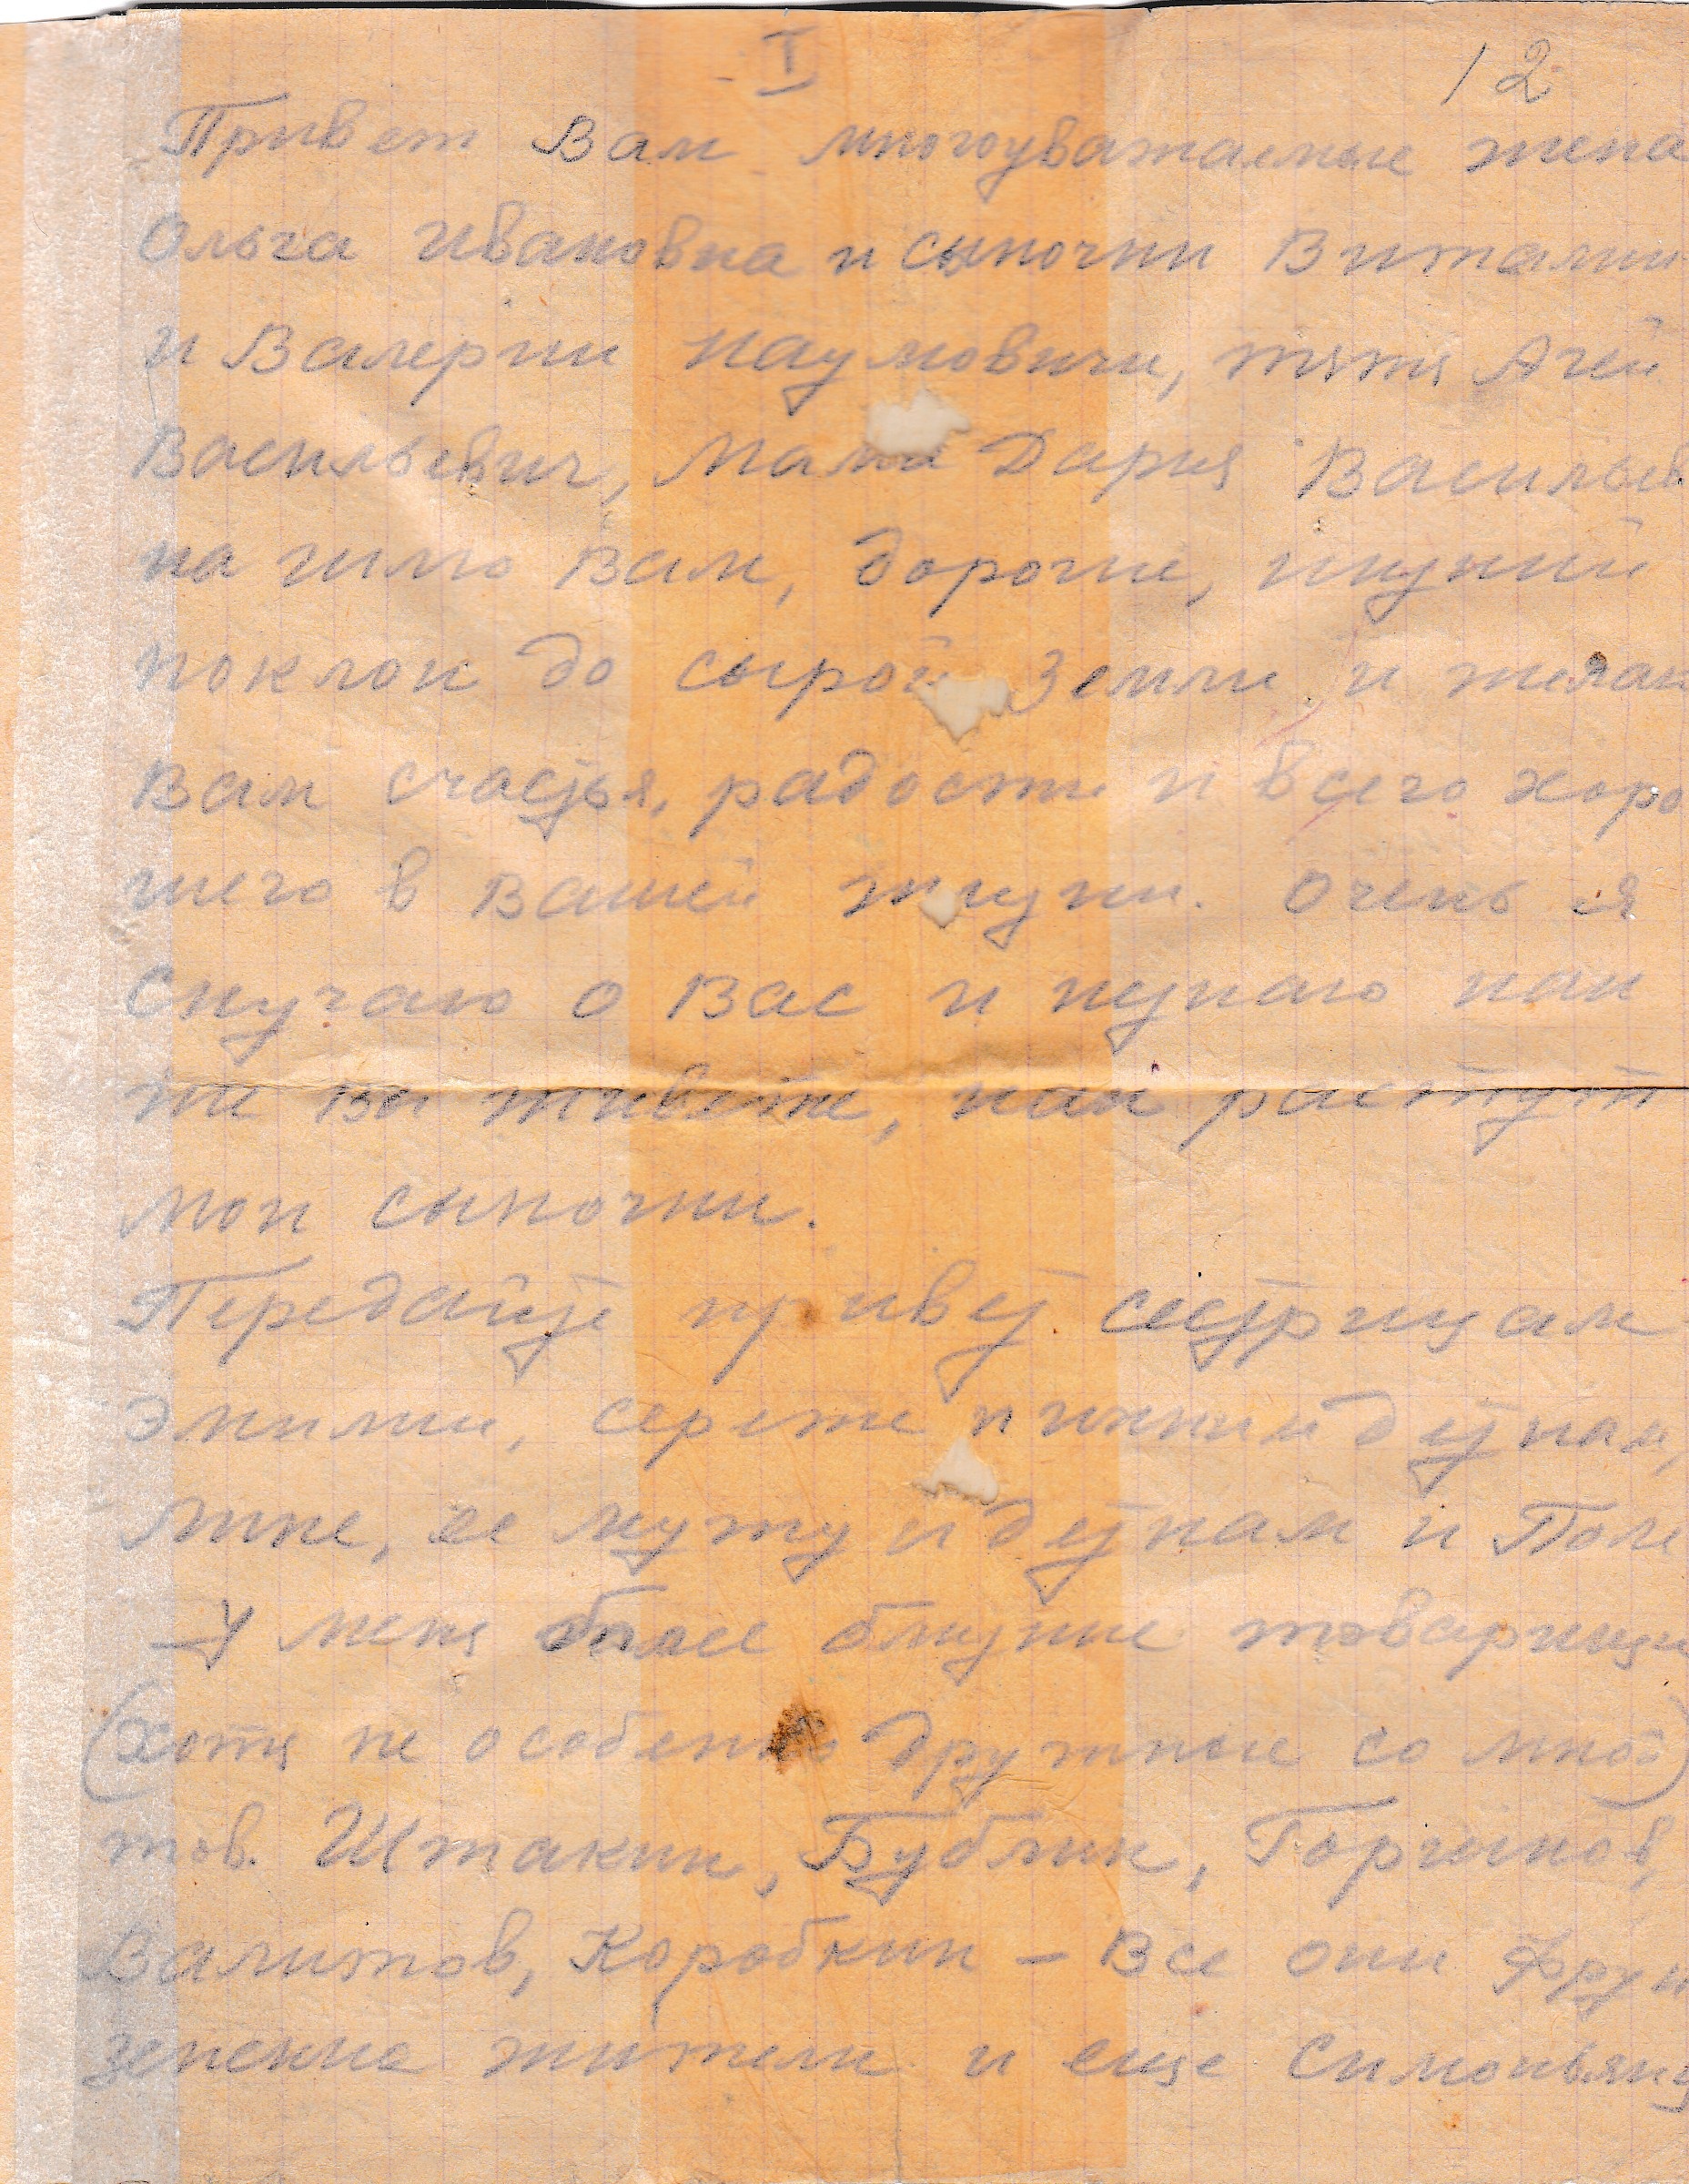 I
12
Привет Вам многоуважаемые жена
Ольга Ивановна и сыночки Виталий
и Валерий Наумовичи, тятя Агей
Васильевич, мама Дария Васильев
на шлю Вам, дорогие, низкий
поклон до сырой земли и желаю
Вам счастья, радости и всего хоро
шего в Вашей жизни. Очень я
скучаю о Вас и думаю как
же Вы живете, как растут
мои сыночки.
Передайте привет сестрицам
Эмилии, сереже и их деткам,
Лине, ее мужу и деткам и Поле
У меня более близкие товарищи
(хотя не особенно дружные со мной)
тов. Штакин, Бублик, Горчинов,
Валитов, Коробкин – Все они Фрун
зенские жители и еще